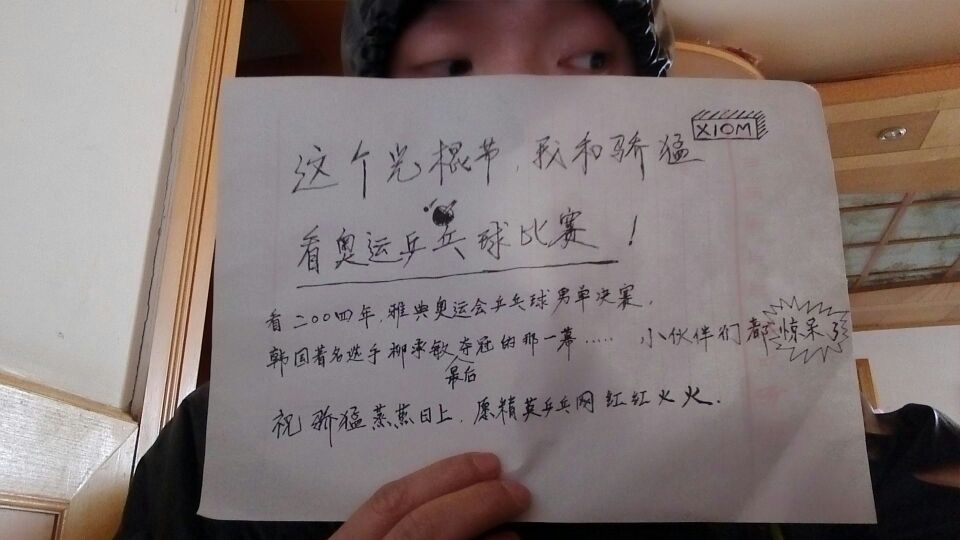 XIOM
这个光棍节，我和骄猛
看奥运乒乓球比赛！
看二〇〇四年，雅典奥运会乒乓球男单决赛，
韩国著名选手柳承敏最后夺冠的那一幕…… 小伙伴们都惊呆了
祝骄猛蒸蒸日上，愿精英乒乓网红红火火.